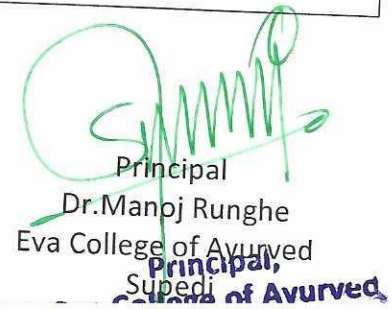 Principal
Dr.Manoj Runghe
Eva College of Ayurved
Principal,
Supedi
College of Ayurved